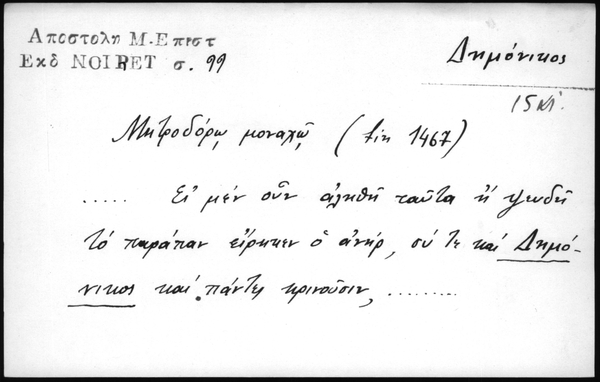 Αποστολη Μ. Επιστ
Εκδ NOIRET σ. 99
Δημόνικος
15 κ/.
Μητροδόρῳ μοναχῷ (fin 1467)
..... Εἰ μὲν οὖν ἀληθῆ ταῦτα ἢ ψευδῆ
τὸ παράπαν εἴρηκεν ὁ ἀνὴρ, σύ τε καὶ Δημό-
νικος καὶ πάντες κρινοῦσιν, ........